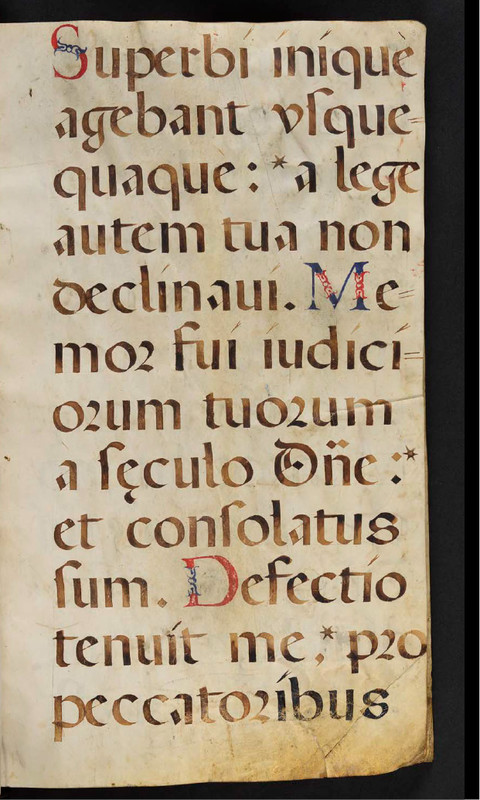 Superbi inique
agebant vſque-
quaque: * a lege
autem tua non
declinaui. Me-
mor fui iudici-
orum tuorum
a ſęculo Dñe: *
et conſolatus
ſum. Defectio
tenuit me, * pro
peccatoribus